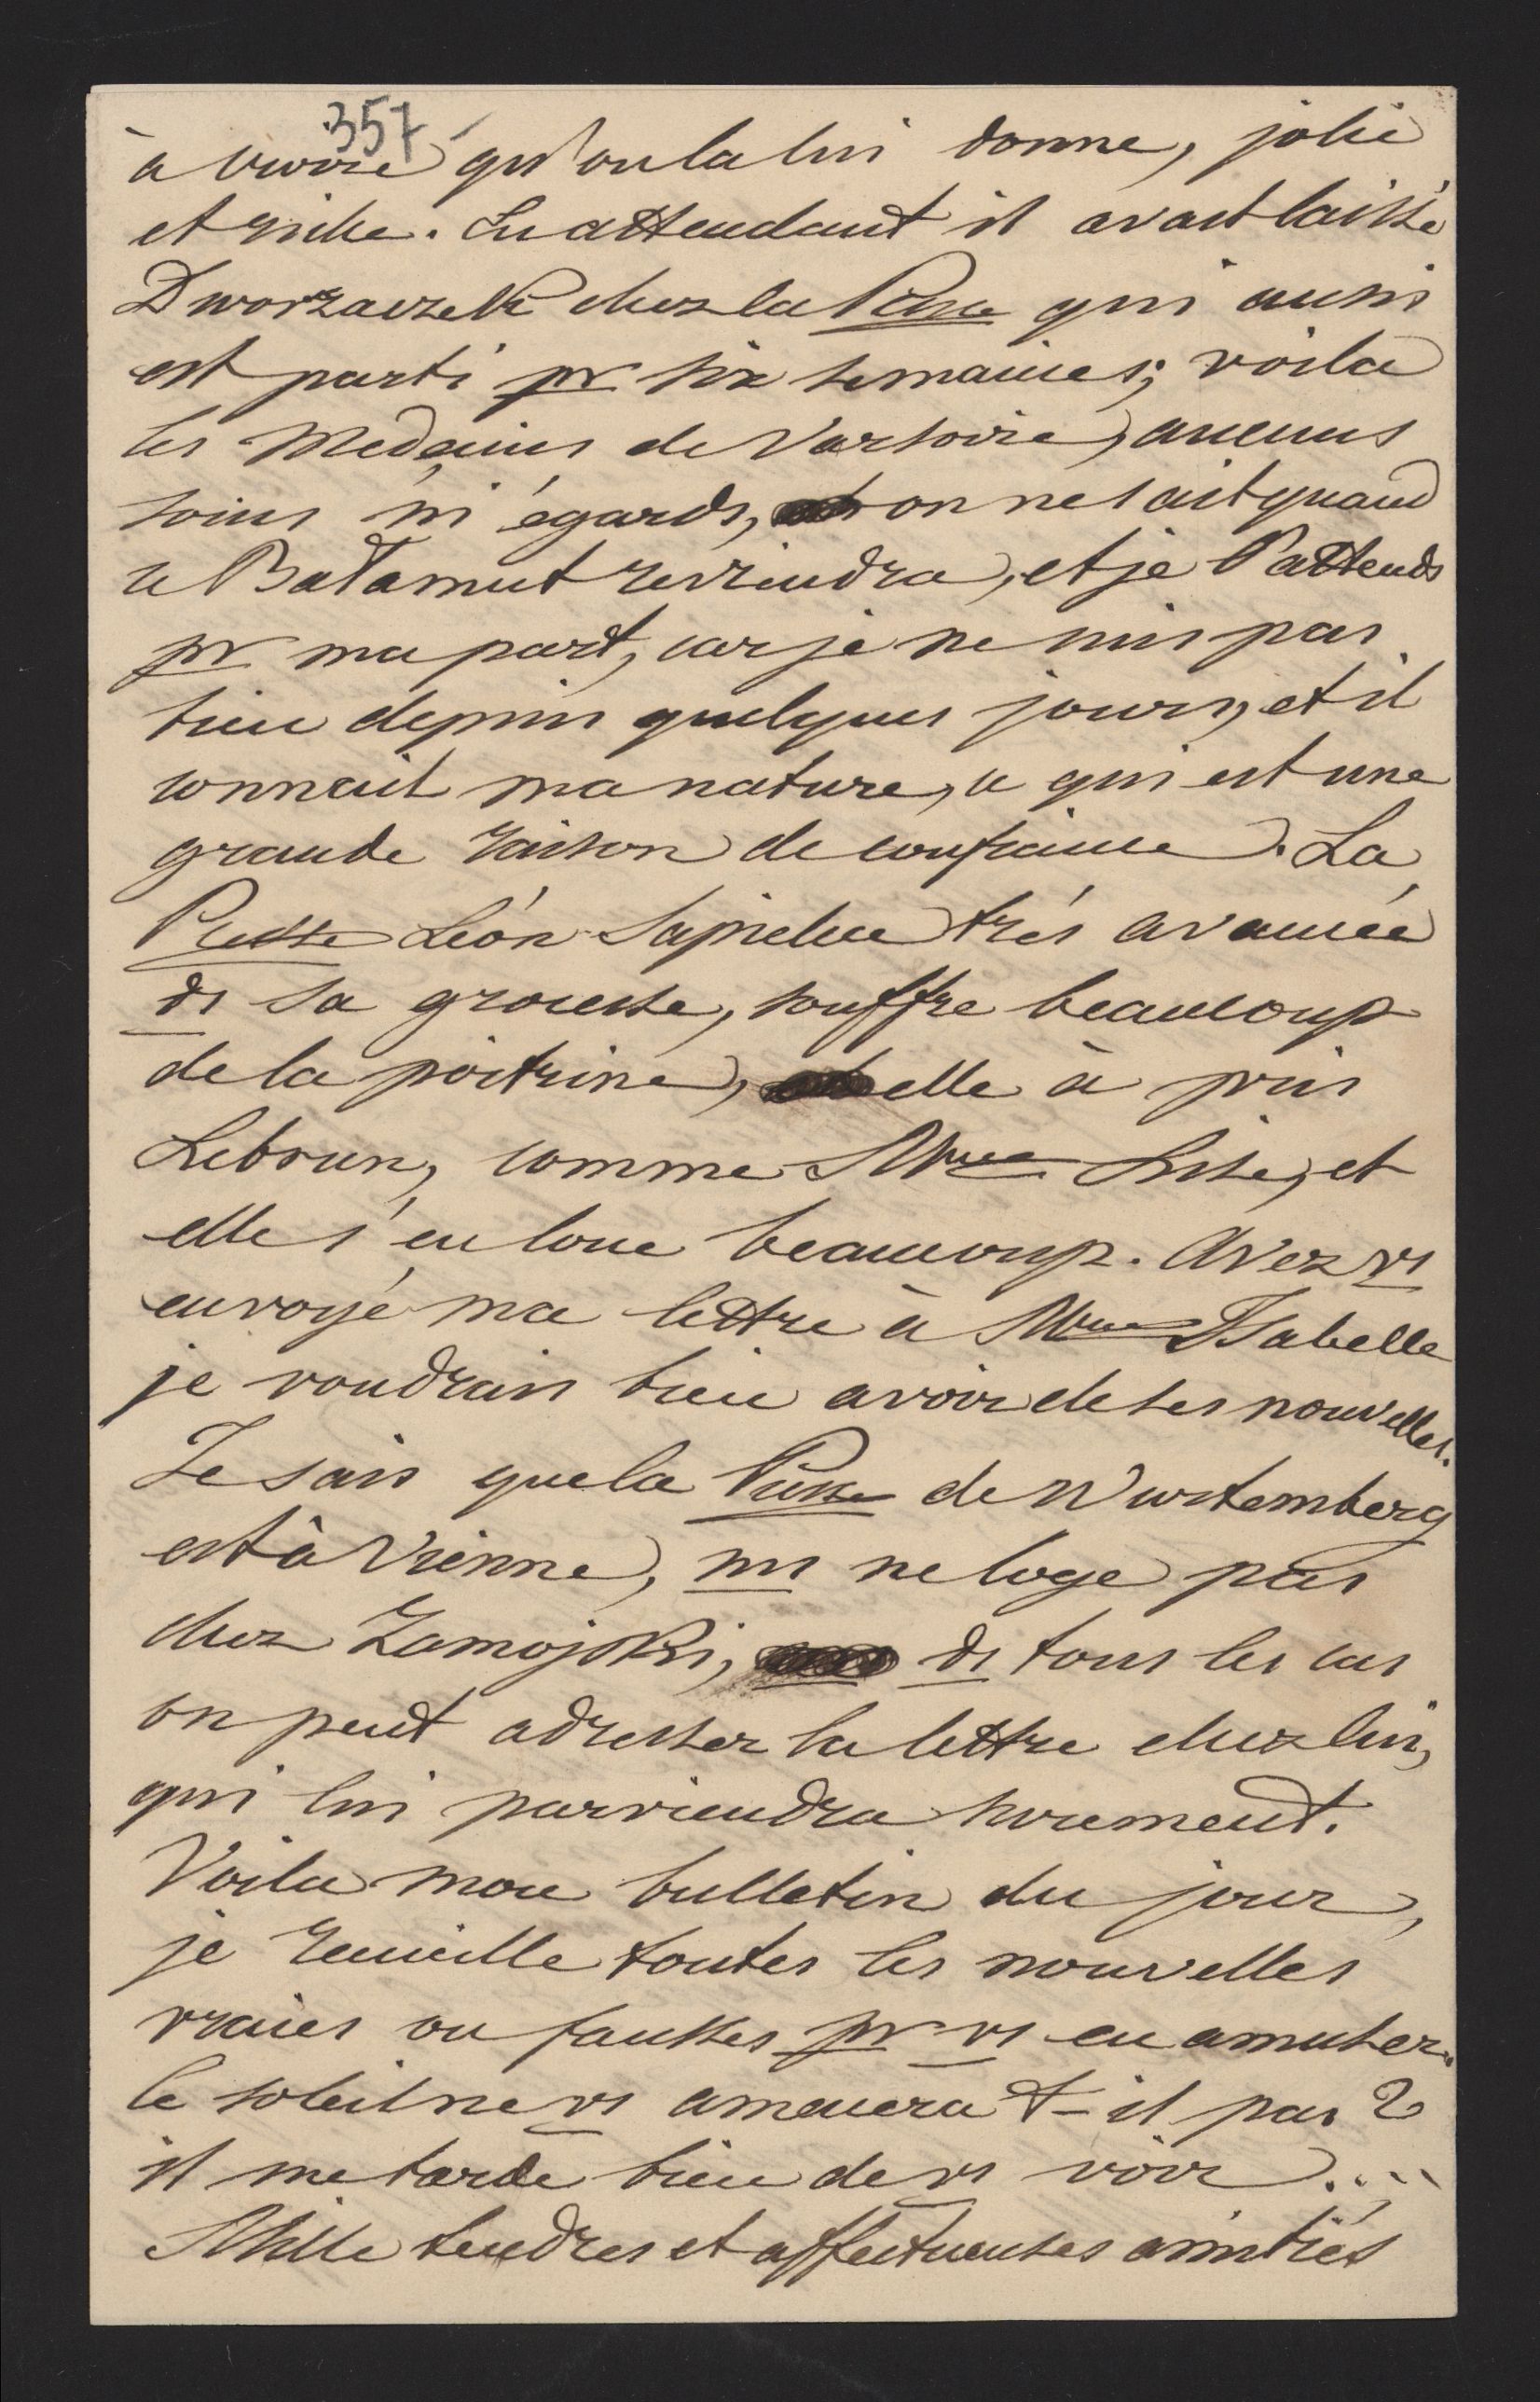 357
à croire qu'on la lui donne, jolie
et riche. En attendant il avait laissé
Dworzaczek chez la Pcsse qui aussi
est parti pr six semaines; voilà
les Medecins de Varsovie, aucuns
soins ni égards, on ne sait quand
ce Bałamut reviendra, et je l'attends
pr ma part, car je ne suis pas
bien depuis quelques jours, et il
connait ma nature, ce qui est une
grande raison de confiance. La
Pcesse Léon Sapieha très avancée
ds sa grossesse, souffre beaucoup
de la poitrine, elle à pris
Lebrun, comme Mme Lise, et
elle s'en loue beaucoup. Avez vs
envoyé ma lettre à Mme Isabelle
je voudrais bien avoir de ses nouvelles.
Je sais que la Pcsse de Wurtemberg
est à Vienne, ne loge pas
chez Zamojski, ds tous les cas
on peut adresser la lettre chez lui,
qui lui parviendra surement.
Voila mon bulletin du jour,
je recueille toutes les nouvelles
vraies ou fausses pr vs en amuser.
le soleil ne vs amenera t-il pas?
il me tarde bien de vs voir....
Mille tendres et affectueuses amitiés